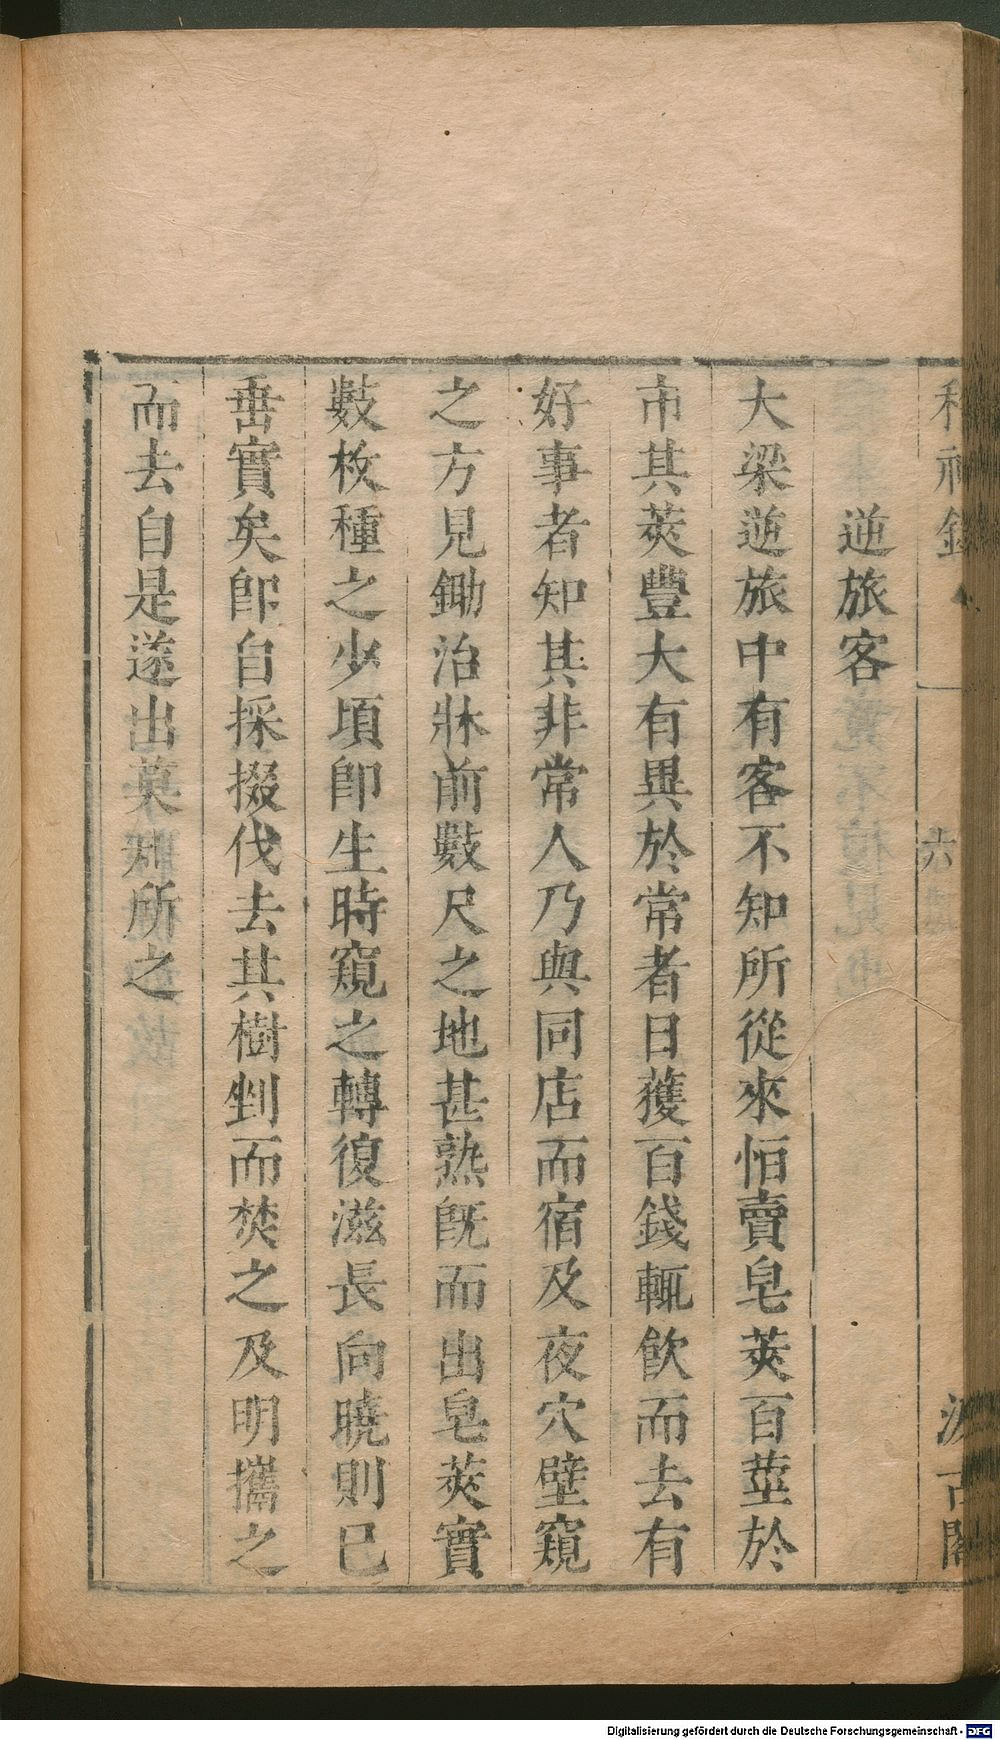 稽神錄
六
汲古閣
逆旅客
大梁逆旅中有客不知所從來恒賣皂莢百莖於
市其莢豐大有異於常者日獲百錢輒飲而去有
好事者知其非常人乃與同店而宿及夜穴壁窺
之方見鋤治牀前數尺之地甚熟旣而出皂莢實
數枚種之少頃卽生時窺之轉復滋長向曉則已
垂實矣卽自採掇伐去其樹剉而焚之及明攜之
而去自是遂出莫知所之
Digitalisierung gefördert durch die Deutsche Forschungsgemeinschaft - DFG